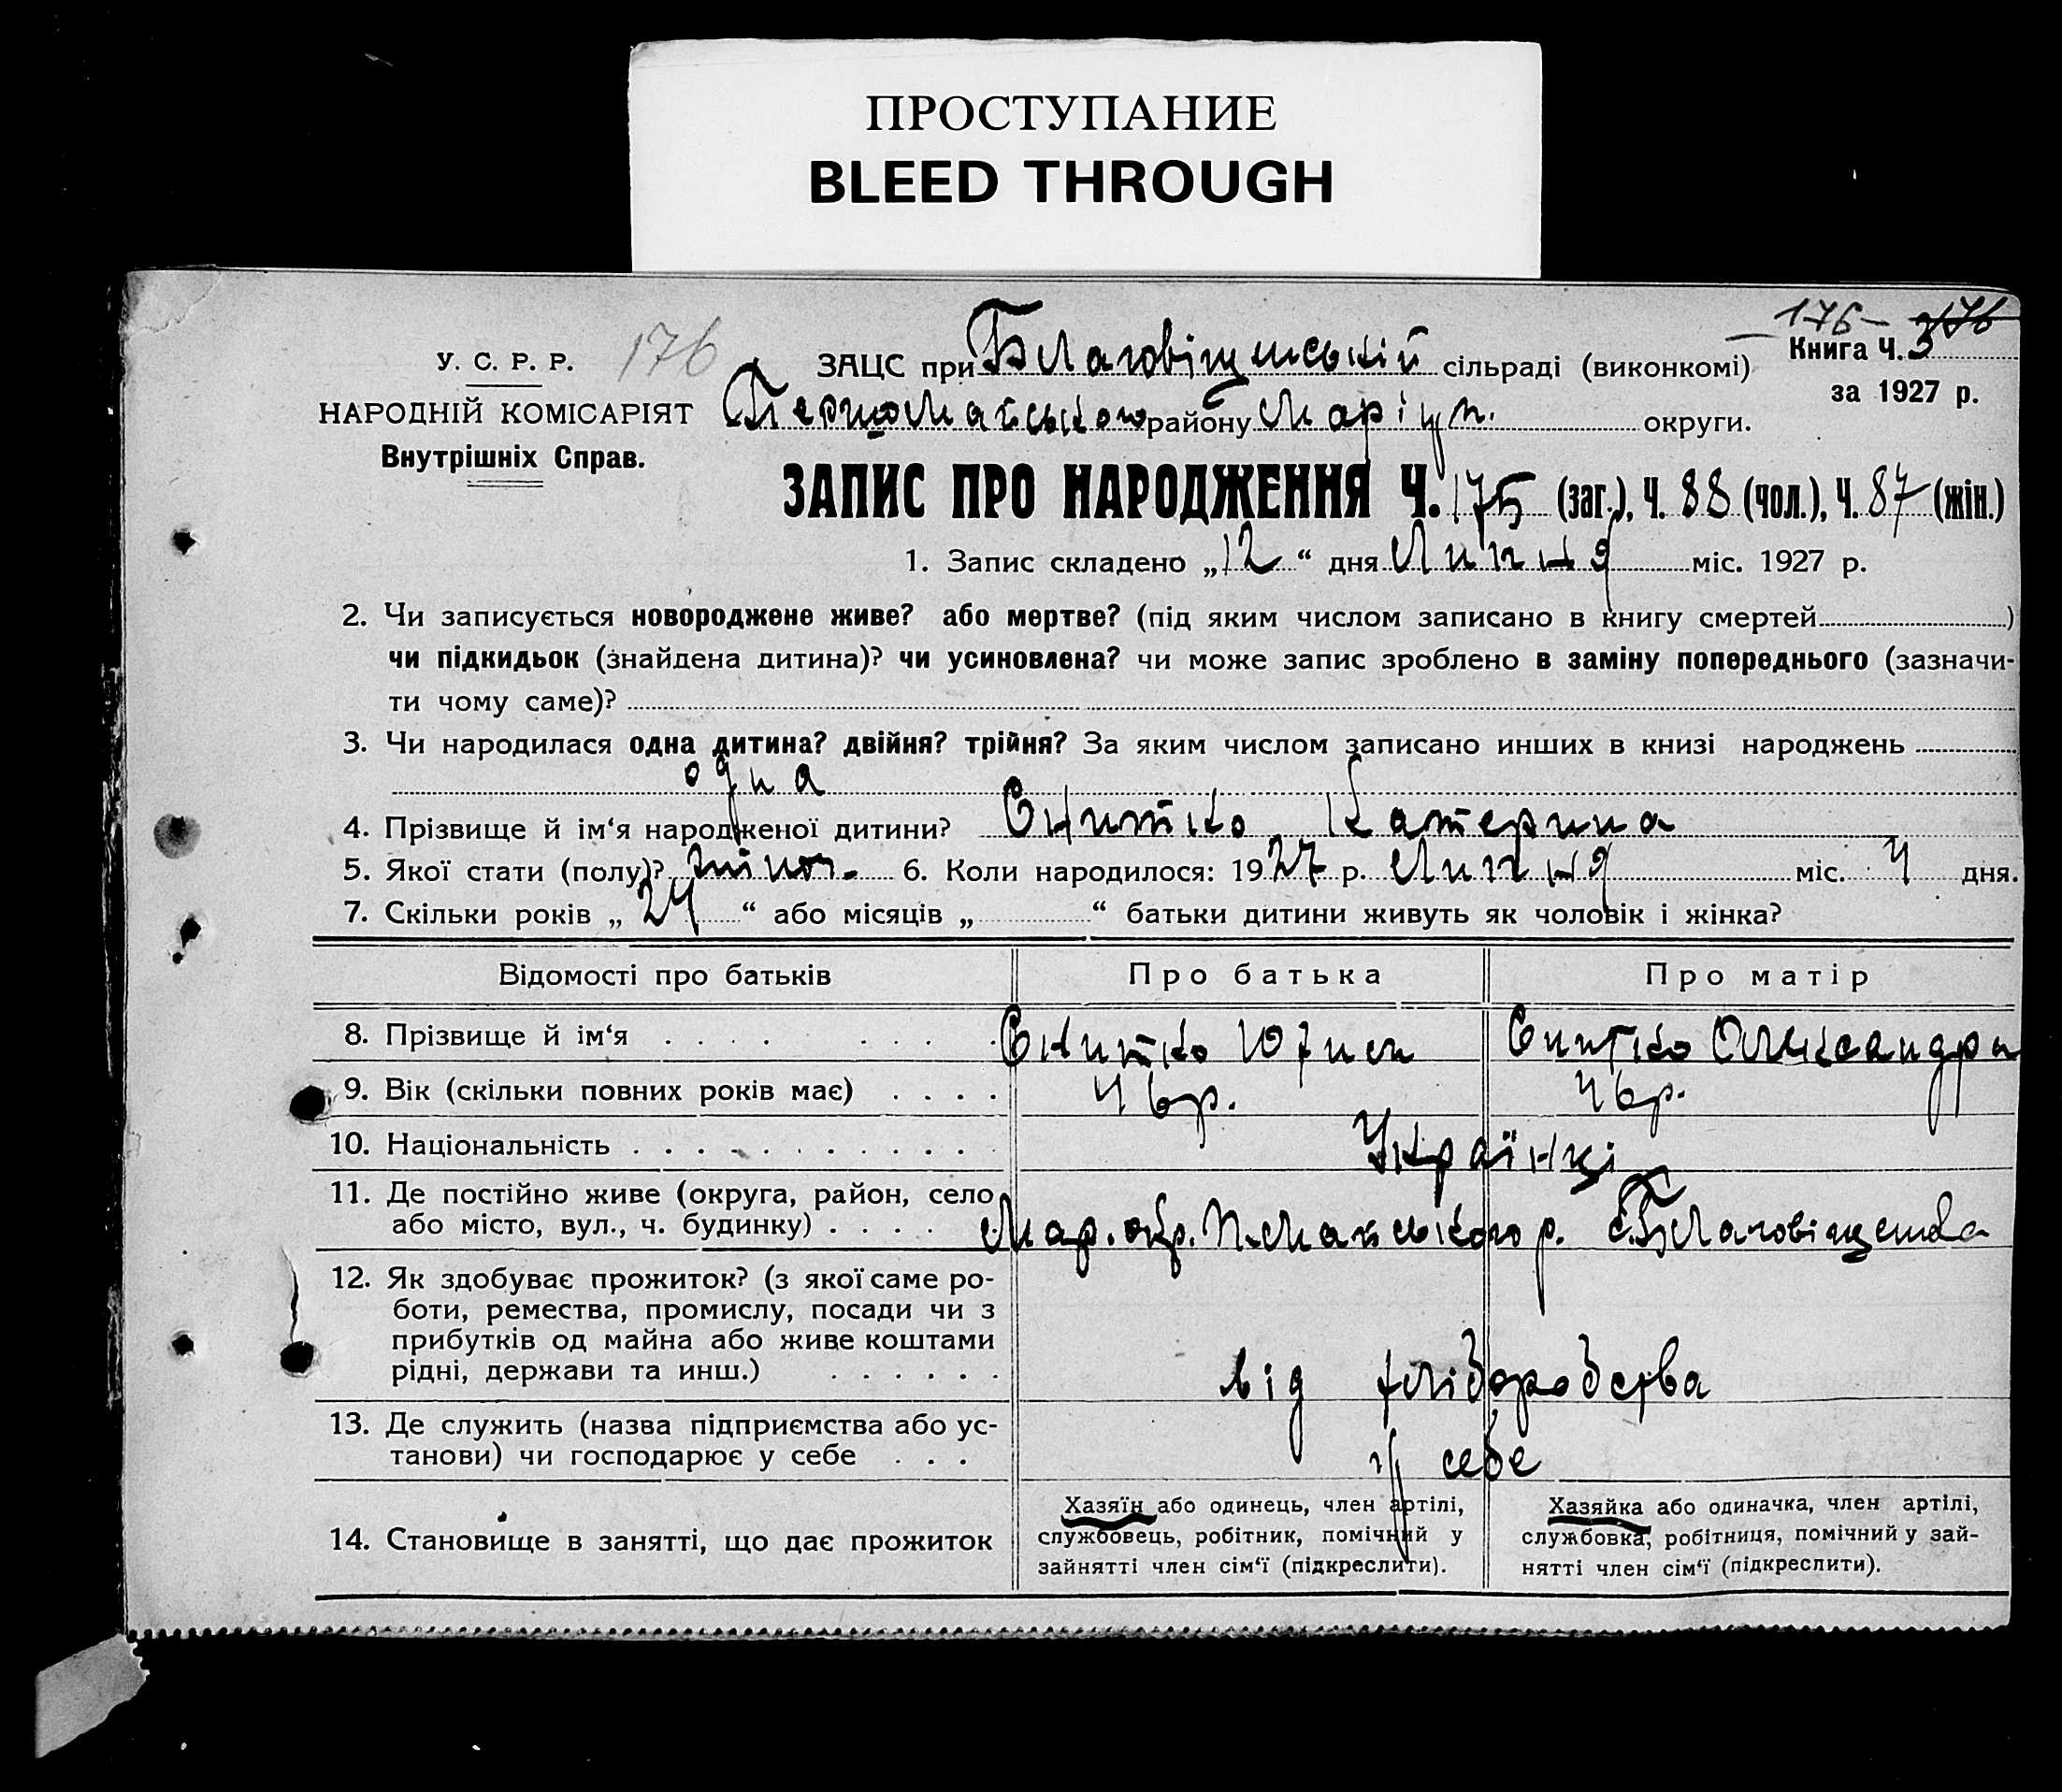 ПРОСТУПАНИЕ
BLEED THROUGH
176 — 376
У. С. Р. Р. 176 ЗАЦС при Благовіщенській сільраді (виконкомі) Книга Ч. 3
за 1927 р.
НАРОДНІЙ КОМІСАРІЯТ Першомайського району Маріуп. округи.
Внутрішніх Справ.
ЗАПИС ПРО НАРОДЖЕННЯ Ч. 175 (заг.), Ч. 88 (чол.), Ч. 87 (жін.)
1. Запис складено „12“ дня Липня міс. 1927 р.
2. Чи записується новороджене живе? або мертве? (під яким числом записано в книгу смертей)
чи підкидьок (знайдена дитина)? чи усиновлена? чи може запис зроблено в заміну попереднього (зазначи-
ти чому саме)?
3. Чи народилася одна дитина? двійня? трійня? За яким числом записано инших в книзі народжень
одна
4. Прізвище й ім‘я народженої дитини? Снитко Катерина
5. Якої стати (полу)? жіноч. 6. Коли народилося: 1927 р. Липня міс. 4 дня.
7. Скільки років „24“ або місяців „ “ батьки дитини живуть як чоловік і жінка?
Відомості про батьків Про батька Про матір
8. Прізвище й ім‘я Снитко Юхим Снитко Олександра
9. Вік (скільки повних років має) 46р. 46р.
10. Національність Українці
11. Де постійно живе (округа, район, село
або місто, вул., ч. будинку) Мар. окр. П.Майського р. с. Благовіщенка
12. Як здобуває прожиток? (з якої саме ро-
боти, ремества, промислу, посади чи з
прибутків од майна або живе коштами
рідні, держави та инш.) від хліборобства
13. Де служить (назва підприємства або ус-
танови) чи господарює у себе у себе
14. Становище в занятті, що дає прожиток
Хазяїн або одинець, член артілі,
службовець, робітник, помічний у
зайнятті член сім‘ї (підкреслити).
Хазяйка або одиначка, член артілі,
службовка, робітниця, помічний у зай-
нятті член сім‘ї (підкреслити).